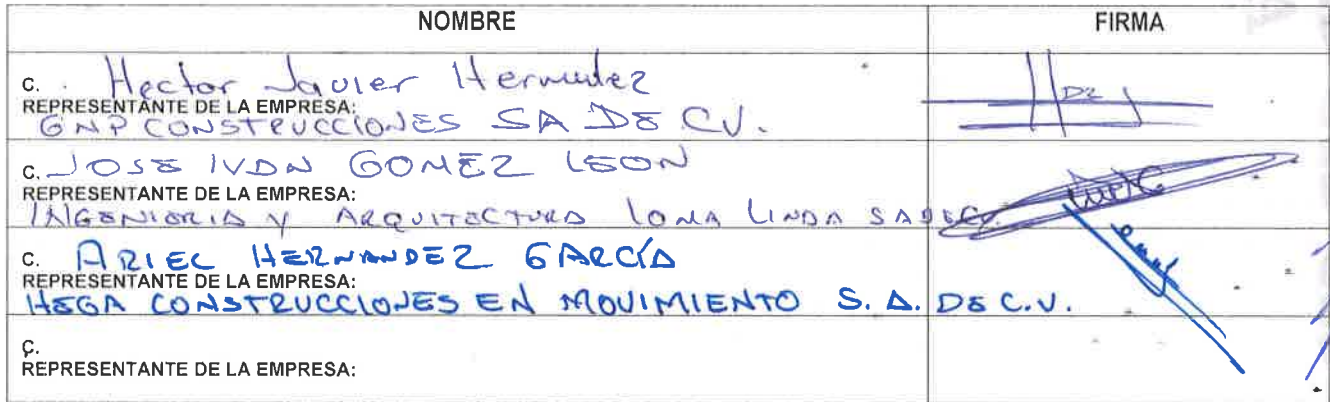 NOMBRE FIRMA
C. Hector Javier Hernandez
REPRESENTANTE DE LA EMPRESA:
GNP CONSTRUCCIONES SA DE CV.
C. JOSE IVAN GOMEZ LEON
REPRESENTANTE DE LA EMPRESA:
INGENIERIA Y ARQUITECTURA LOMA LINDA SADECV.
C. ARIEL HERNANDEZ GARCÍA
REPRESENTANTE DE LA EMPRESA:
HEGA CONSTRUCCIONES EN MOVIMIENTO S. A. DE C.V.
C.
REPRESENTANTE DE LA EMPRESA: